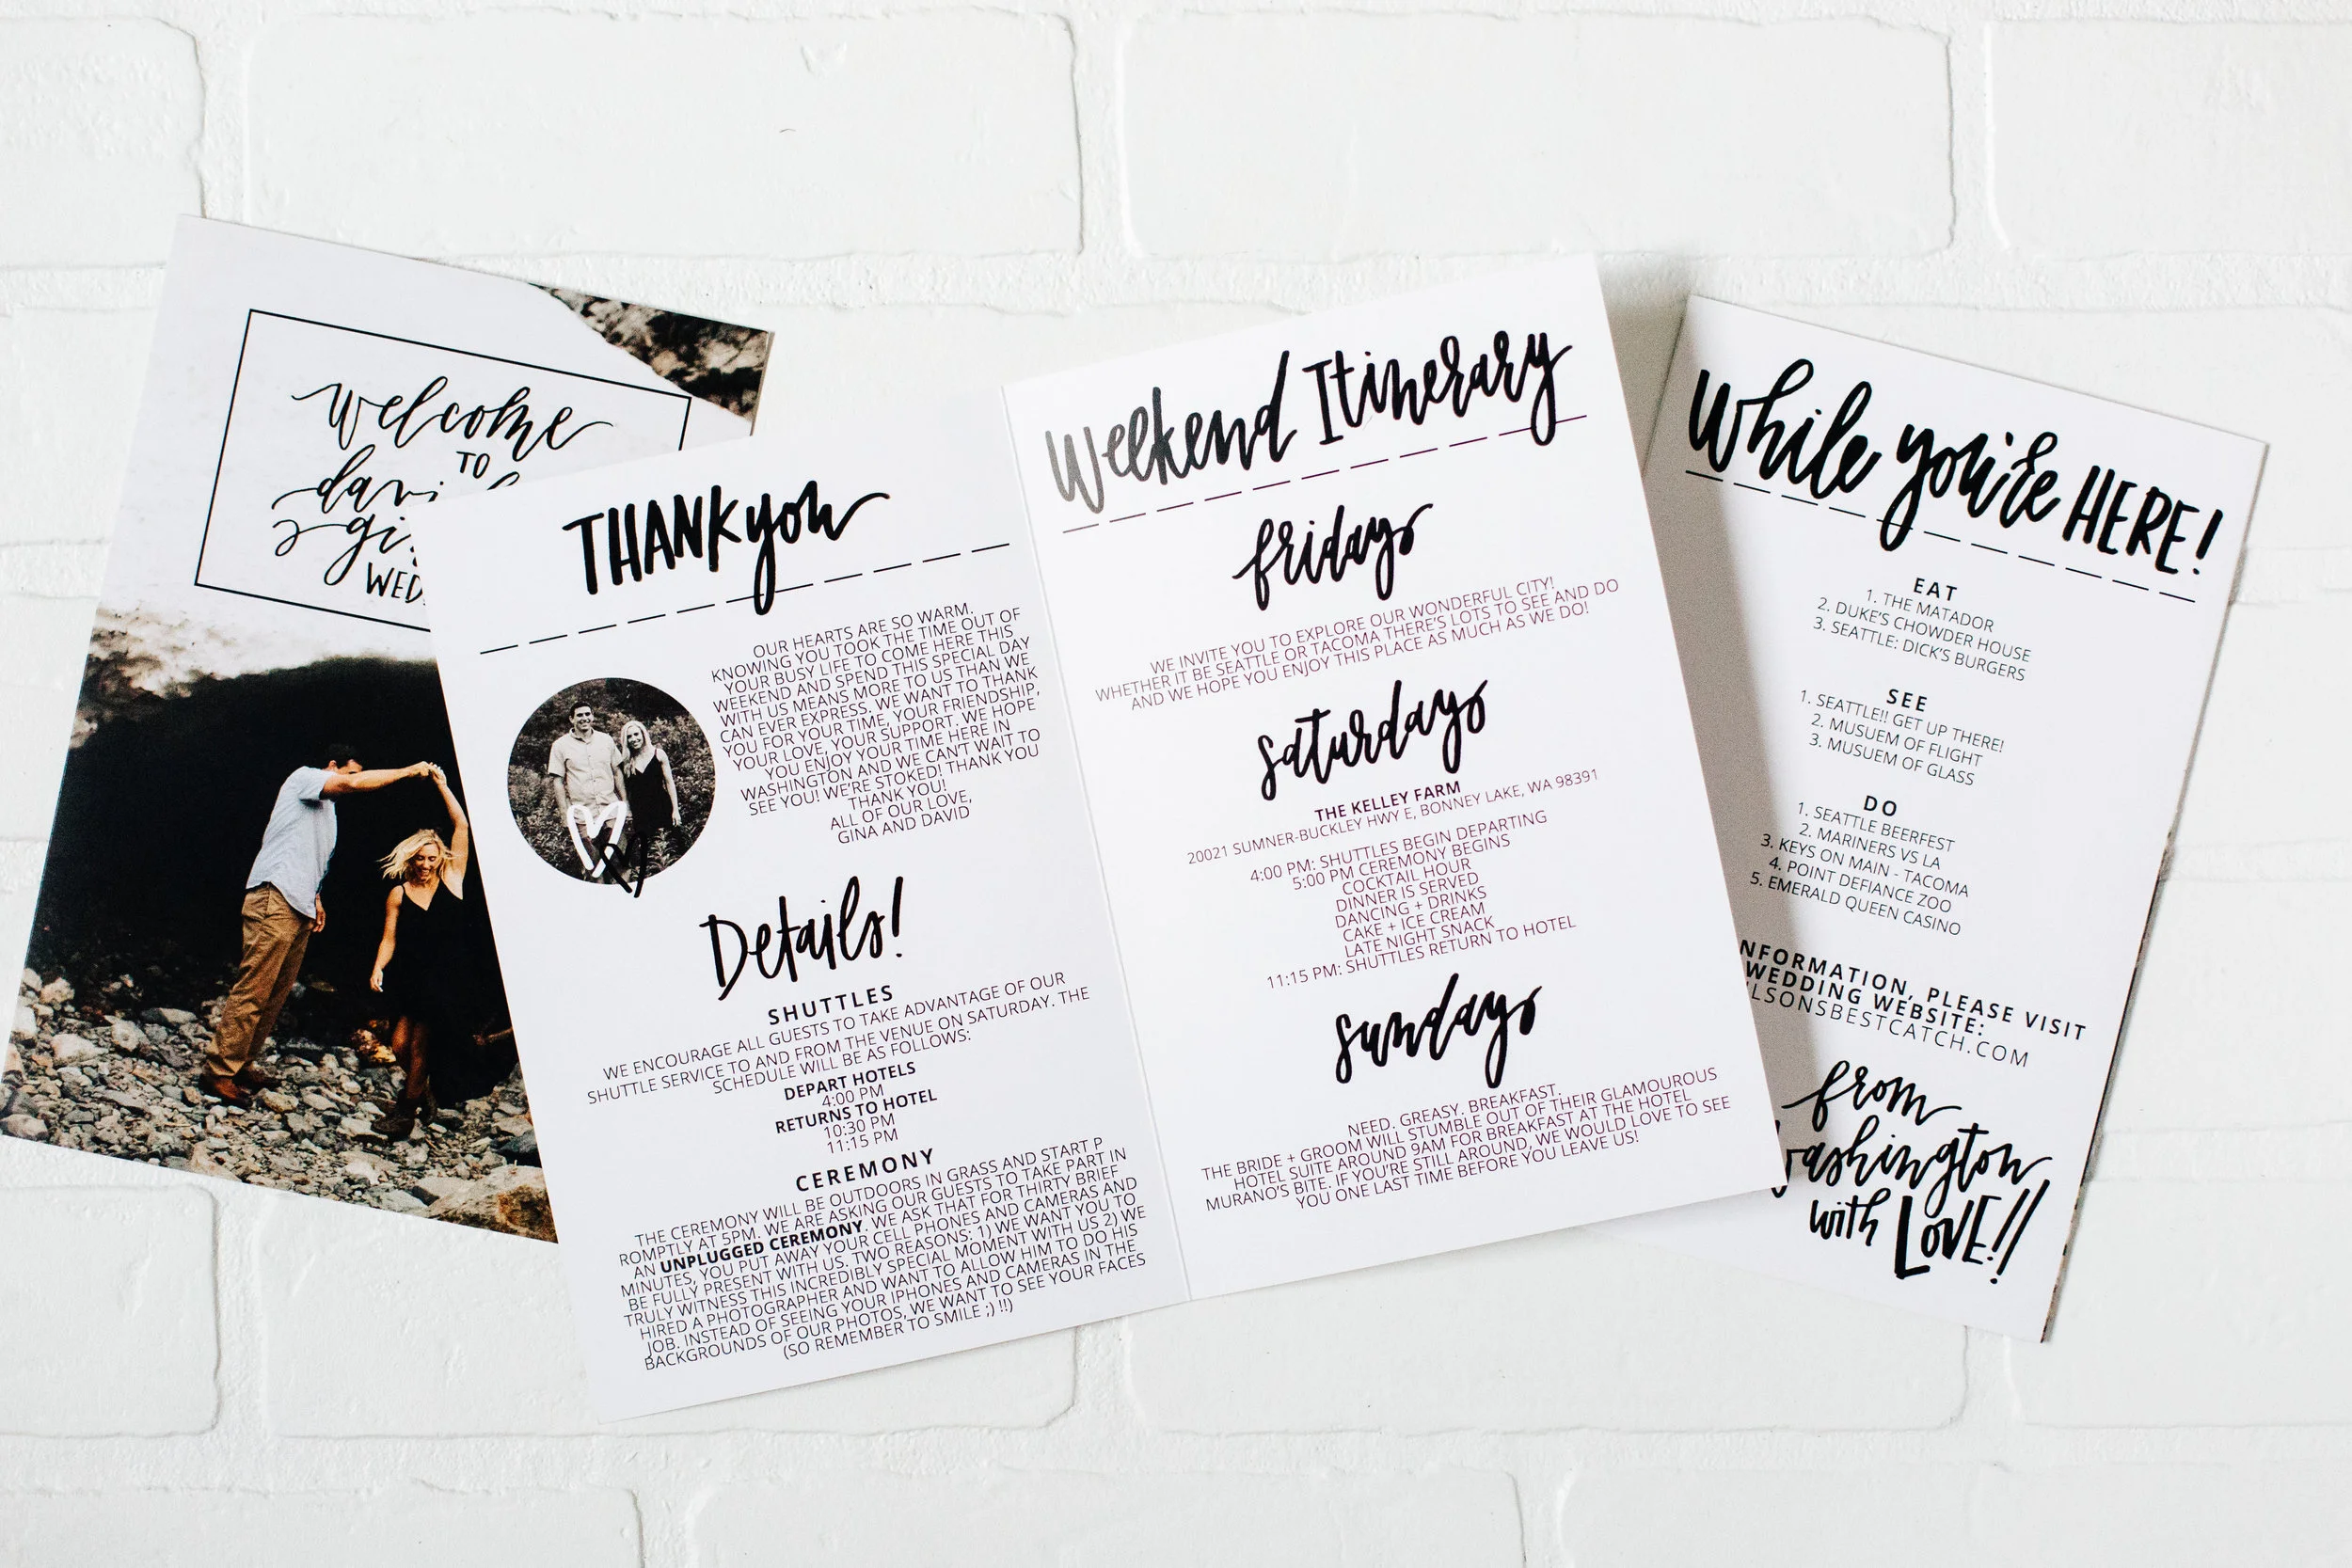 welcome
TO
WED
THANK you
OUR HEARTS ARE SO WARM.
KNOWING YOU TOOK THE TIME OUT OF
YOUR BUSY LIFE TO COME HERE THIS
WEEKEND AND SPEND THIS SPECIAL DAY
WITH US MEANS MORE TO US THAN WE
CAN EVER EXPRESS. WE WANT TO THANK
YOU FOR YOUR TIME, YOUR FRIENDSHIP,
YOUR LOVE, YOUR SUPPORT. WE HOPE
YOU ENJOY YOUR TIME HERE IN
WASHINGTON AND WE CAN'T WAIT TO
SEE YOU! WE'RE STOKED! THANK YOU
THANK YOU!
ALL OF OUR LOVE,
GINA AND DAVID
Details!
SHUTTLES
WE ENCOURAGE ALL GUESTS TO TAKE ADVANTAGE OF OUR
SHUTTLE SERVICE TO AND FROM THE VENUE ON SATURDAY. THE
SCHEDULE WILL BE AS FOLLOWS:
DEPART HOTELS
4:00 PM
RETURNS TO HOTEL
10:30 PM
11:15 PM
CEREMONY
THE CEREMONY WILL BE OUTDOORS IN GRASS AND START P
ROMPTLY AT 5PM. WE ARE ASKING OUR GUESTS TO TAKE PART IN
AN UNPLUGGED CEREMONY. WE ASK THAT FOR THIRTY BRIEF
MINUTES, YOU PUT AWAY YOUR CELL PHONES AND CAMERAS AND
BE FULLY PRESENT WITH US. TWO REASONS: 1) WE WANT YOU TO
TRULY WITNESS THIS INCREDIBLY SPECIAL MOMENT WITH US 2) WE
HIRED A PHOTOGRAPHER AND WANT TO ALLOW HIM TO DO HIS
JOB. INSTEAD OF SEEING YOUR IPHONES AND CAMERAS IN THE
BACKGROUNDS OF OUR PHOTOS, WE WANT TO SEE YOUR FACES
(SO REMEMBER TO SMILE ;) !!)
Weekend Itinerary
friday
WE INVITE YOU TO EXPLORE OUR WONDERFUL CITY!
WHETHER IT BE SEATTLE OR TACOMA THERE'S LOTS TO SEE AND DO
AND WE HOPE YOU ENJOY THIS PLACE AS MUCH AS WE DO!
saturday
THE KELLEY FARM
20021 SUMNER-BUCKLEY HWY E, BONNEY LAKE, WA 98391
4:00 PM: SHUTTLES BEGIN DEPARTING
5:00 PM CEREMONY BEGINS
COCKTAIL HOUR
DINNER IS SERVED
DANCING + DRINKS
CAKE + ICE CREAM
LATE NIGHT SNACK
11:15 PM: SHUTTLES RETURN TO HOTEL
sunday
NEED. GREASY. BREAKFAST.
THE BRIDE + GROOM WILL STUMBLE OUT OF THEIR GLAMOUROUS
HOTEL SUITE AROUND 9AM FOR BREAKFAST AT THE HOTEL
MURANO'S BITE. IF YOU'RE STILL AROUND, WE WOULD LOVE TO SEE
YOU ONE LAST TIME BEFORE YOU LEAVE US!
While you're HERE!
EAT
1. THE MATADOR
2. DUKE'S CHOWDER HOUSE
3. SEATTLE: DICK'S BURGERS
SEE
1. SEATTLE!! GET UP THERE!
2. MUSUEM OF FLIGHT
3. MUSUEM OF GLASS
DO
1. SEATTLE BEERFEST
2. MARINERS VS LA
3. KEYS ON MAIN - TACOMA
4. POINT DEFIANCE ZOO
5. EMERALD QUEEN CASINO
NFORMATION, PLEASE VISIT
WEDDING WEBSITE:
LSONSBESTCATCH.COM
from
washington
with LOVE!!